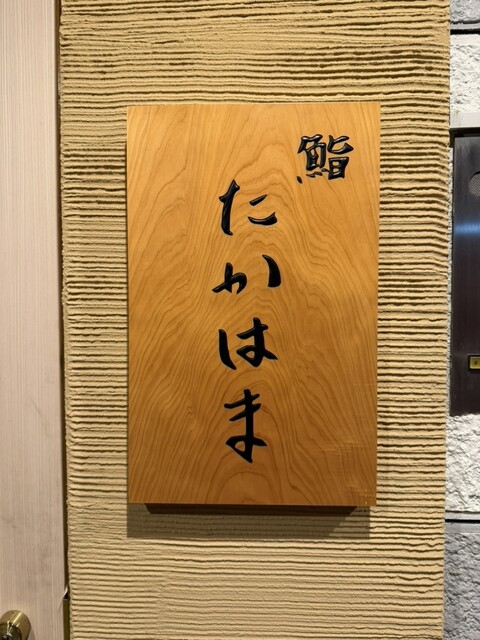 鮨
たかはま